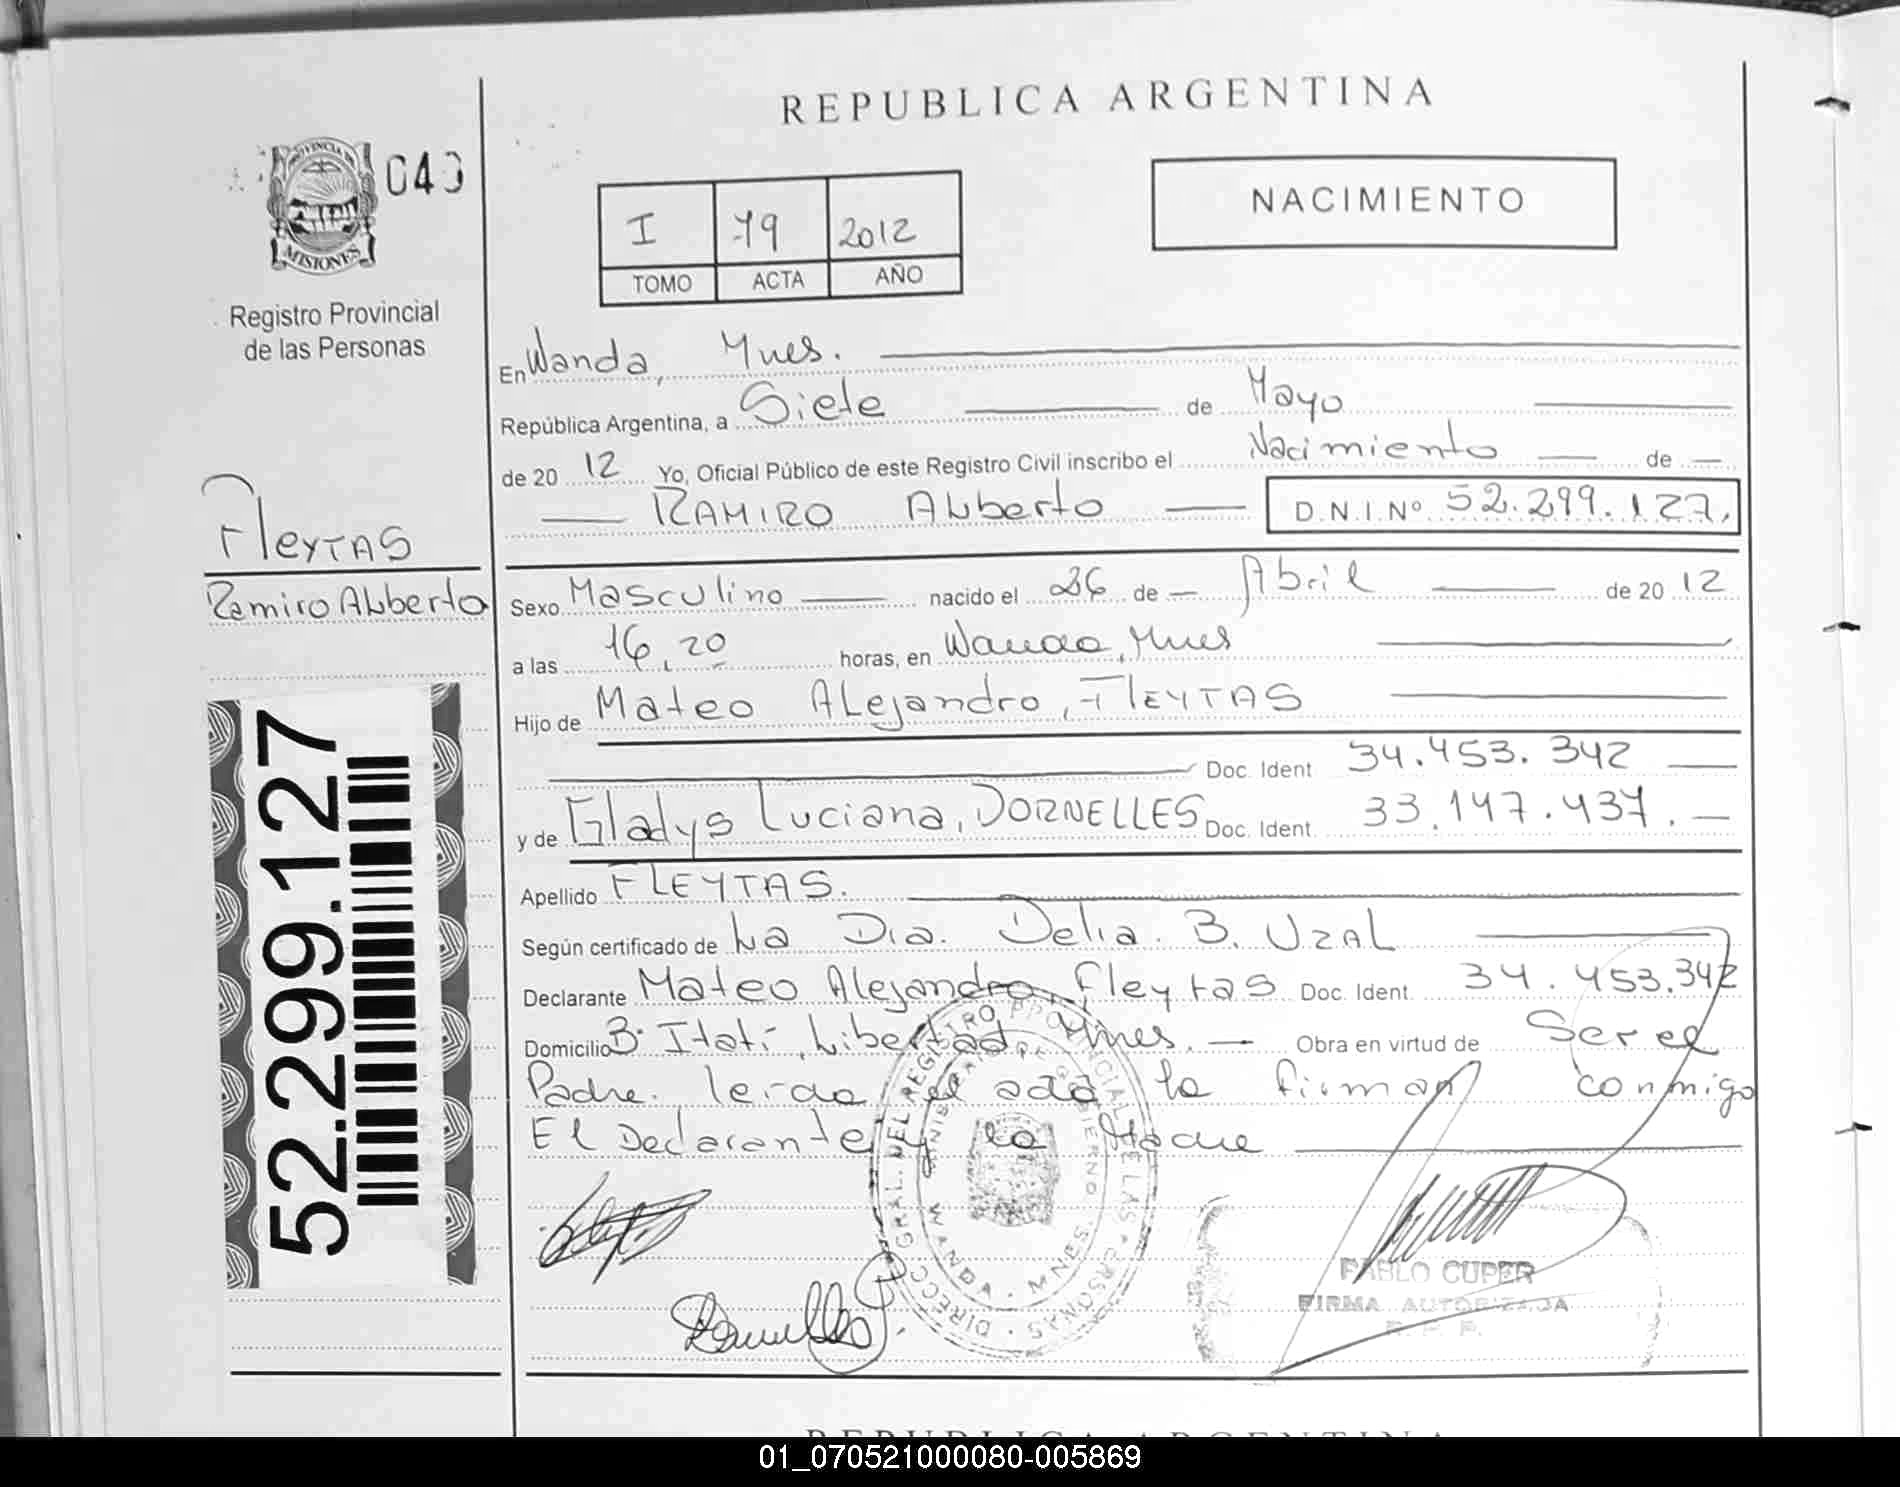 REPUBLICA ARGENTINA
PROVINCIA DE
MISIONES
040
Registro Provincial
de las Personas
I 79 2012
TOMO ACTA AÑO
NACIMIENTO
En Wanda, Mnes.
República Argentina, a Siete de Mayo
de 20 12 Yo, Oficial Público de este Registro Civil inscribo el Nacimiento de
RAMIRO Alberto D.N.I.Nº 52.299.127.
FleyTAS
Ramiro Alberto
Sexo Masculino nacido el 26 de Abril de 20 12
a las 16,20 horas, en Wanda, Mnes
Hijo de Mateo Alejandro, FLEYTAS
Doc. Ident 34.453.342
y de Gladys Luciana, DORNELLES Doc. Ident. 33.147.437.
Apellido FLEYTAS.
Según certificado de La Dra. Delia. B. UZAL
Declarante Mateo Alejandro, Fleytas Doc. Ident. 34.453.342
Domicilio Bº Itatí, Libertad Mnes. Obra en virtud de Ser el
Padre. leida el acta la firman conmigo
El Declarante y la Madre
52.299.127
DIRECC. GRAL. DEL REGISTRO PROVINCIAL DE LAS PERSONAS
WANDA - MNES.
PABLO CUPER
FIRMA AUTORIZADA
R. P. P.
REPUBLICA ARGENTINA
01_070521000080-005869